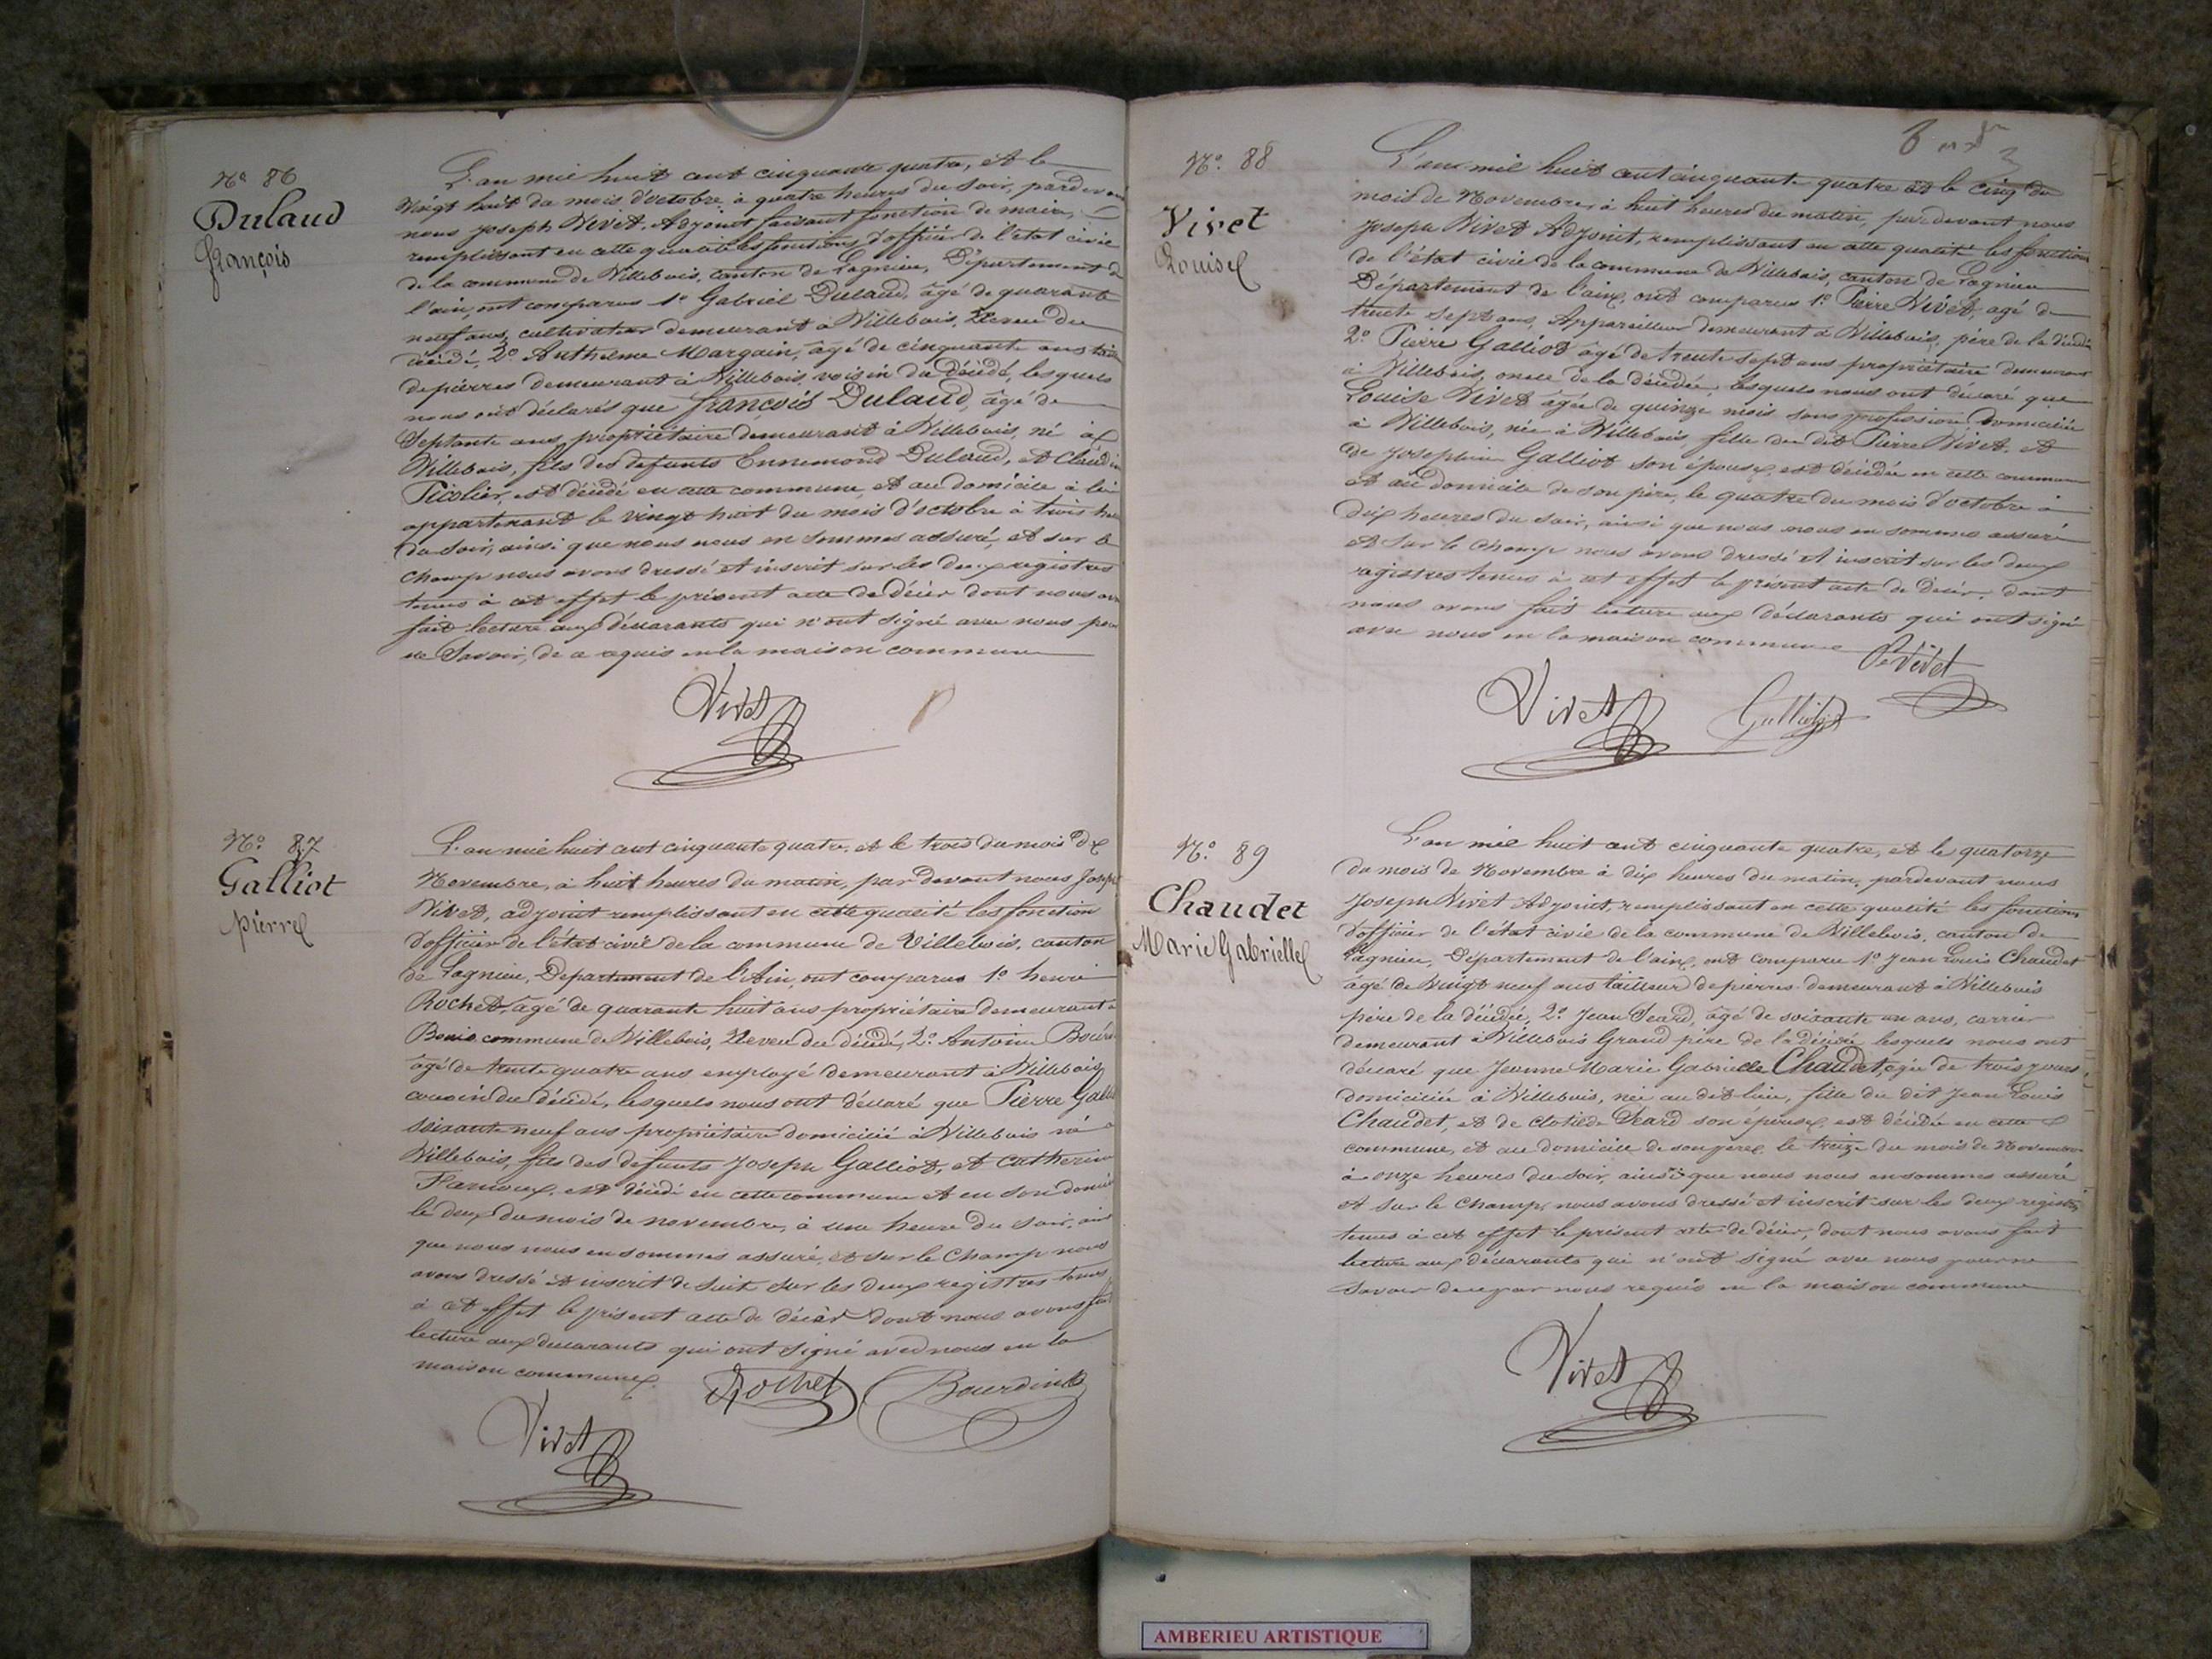 N° 86
Dulaud
françois
L'an mil huit cent cinquante quatre, et le
vingt huit du mois d'octobre à quatre heures du soir, pardevant
nous joseph Vivet, Adjoint faisant fonction de maire,
remplissant en cette qualité les fonctions d'officier de l'état civil
de la commune de Villebois, canton de Lagnieu, Département de
l'ain, ont comparus 1° Gabriel Dulaud, âgé de quarante
neuf ans, cultivateur demeurant à Villebois, Neveu du
décédé, 2° Anthelme Margain, âgé de cinquante ans
de pierres demeurant à Villebois voisin du décédé, lesquels
nous ont déclarés que françois Dulaud, âgé de
Septante ans, propriétaire demeurant à Villebois, né à
Villebois, fils des defunts Ennemond Dulaud, et
Picolier, est décédé en cette commune et au domicile à lui
appartenant le vingt huit du mois d'octobre à trois
du soir, ainsi que nous nous en sommes assuré, et sur le
champ nous avons dressé et inscrit sur les deux registres
tenus à cet effet le présent acte de décès dont nous
fait lecture aux déclarants qui n'ont signé avec nous pour
ne Savoir, de ce requis en la maison commune
Vivet
N° 87
Galliot
pierre
L'an mil huit cent cinquante quatre, et le trois du mois de
Novembre, à huit heures du matin, par devant nous Joseph
Vivet, adjoint remplissant en cette qualité les fonction
d'officier de l'état civil de la commune de Villebois, canton
de Lagnieu, Departement de l'Ain, ont comparus 1° henri
Rochet, âgé de quarante huit ans propriétaire demeurant à
Bouis commune de Villebois, Neveu du décédé, 2° Antoine
âgé de trente quatre ans employé demeurant à Villebois
cousin du décédé, lesquels nous ont déclaré que Pierre
soixante neuf ans propriétaire domicilié à Villebois né à
Villebois, fils des defunts Joseph Galliot, et Catherine
est décédé en cette commune et en son
le deux du mois de novembre, à une heure du soir,
que nous nous en sommes assuré, et sur le champ nous
avons dressé et inscrit de suite sur les deux registres tenus
à cet effet le présent acte de décès dont nous avons
lecture aux declarants qui ont signé avec nous en la
maison commune
Rochet Bourdin
Vivet
N° 88
Vivet
Louise
L'an mil huit cent cinquante quatre et le cinq du
mois de Novembre, à huit heures du matin, par devant nous
joseph Vivet Adjoint, remplissant en cette qualité les fonctions
de l'état civil de la commune de Villebois, canton de Lagnieu
Département de l'ain, ont comparus 1° Pierre Vivet, agé de
trente sept ans, Appareilleur demeurant à Villebois, père de la
2° Pierre Galliot âgé de trente sept ans propriétaire demeurant
à Villebois, oncle de la décédée, lesquels nous ont déclaré que
Louise Vivet âgée de quinze mois sans profession domiciliée
à Villebois, née à Villebois fille du dit Pierre Vivet, et
de josephine Galliot son épouse, est décédée en cette commune
et au domicile de son père, le quatre du mois d'octobre à
dix heures du soir, ainsi que nous nous en sommes assuré
et sur le champ nous avons dressé et inscrit sur les deux
registres tenus à cet effet le présent acte de décès, dont
nous avons fait lecture aux déclarants qui ont signé
avec nous en la maison commune
Vivet
Vivet Galliot
N° 89
Chaudet
Marie Gabrielle
L'an mil huit cent cinquante quatre, et le quatorze
du mois de Novembre à dix heures du matin, pardevant nous
joseph Vivet Adjoint, remplissant en cette qualité les fonctions
d'officier de l'état civil de la commune de Villebois, canton de
Lagnieu, Département de l'ain, ont comparu 1° Jean Louis Chaudet
agé de vingt neuf ans tailleur de pierres demeurant à Villebois
père de la décédée, 2° Jean Seard, âgé de soixante un ans, carrier
demeurant à Villebois Grand père de la décédée lesquels nous ont
déclaré que Jeanne Marie Gabrielle Chaudet, agée de trois jours,
domiciliée à Villebois, née au dit lieu, fille du dit Jean Louis
Chaudet, et de Clotilde Seard son épouse, est décédée en cette
commune, et au domicile de son père le treize du mois de Novembre
à onze heures du soir, ainsi que nous nous en sommes assuré
et sur le champ, nous avons dressé et inscrit sur les deux registres
tenus à cet effet le présent acte de décès, dont nous avons fait
lecture aux déclarants qui n'ont signé avec nous pour ne
savoir de ce par nous requis en la maison commune
Vivet
AMBERIEU ARTISTIQUE